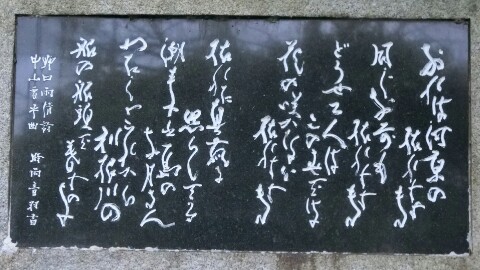 おれは河原の
枯れすすき
同じお前も
枯れすすき
どうせ二人は
この世では
花の咲かない
枯れすすき
枯れた真菰に
照らしてる
潮来出島の
お月さん
わたしゃこれから
利根川の
船の船頭で
暮すのよ
野口雨情詩
中山晋平曲